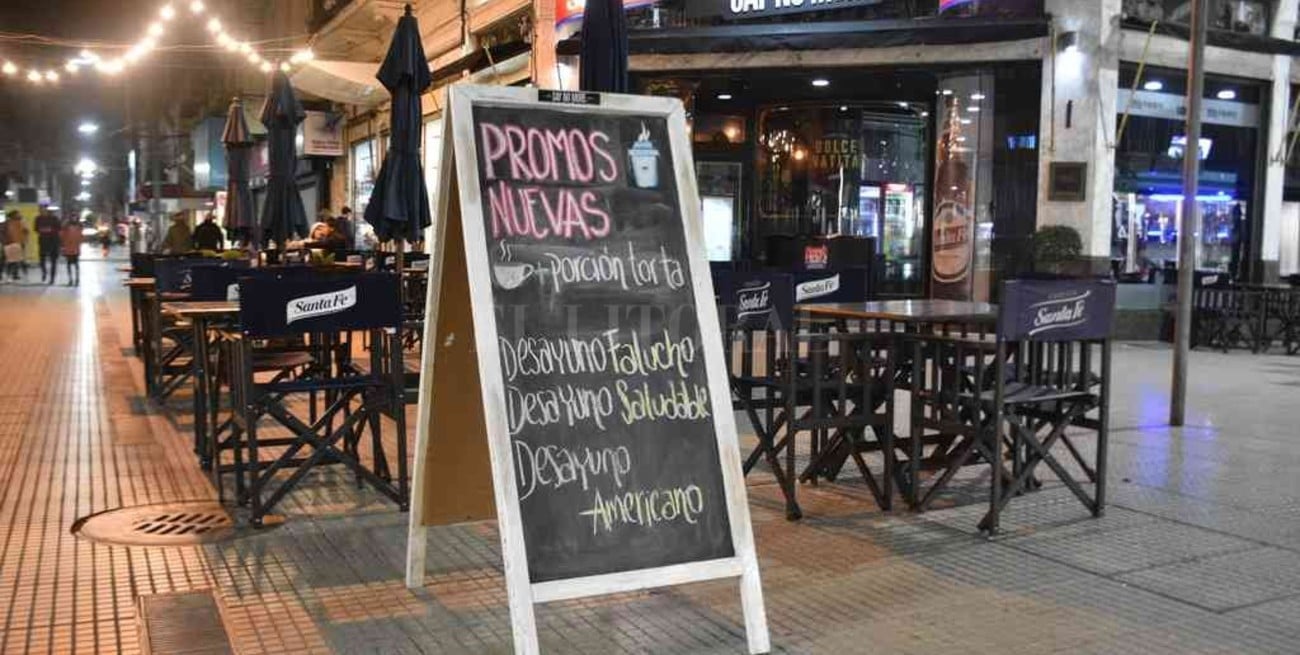 SAY NO MORE
PROMOS
NUEVAS
+ porción torta
Desayuno Falucho
Desayuno Saludable
Desayuno
- Americano
Santa Fe
Santa Fe
Santa Fe
Santa Fe
DOLCE
VATITA
EL LITORAL